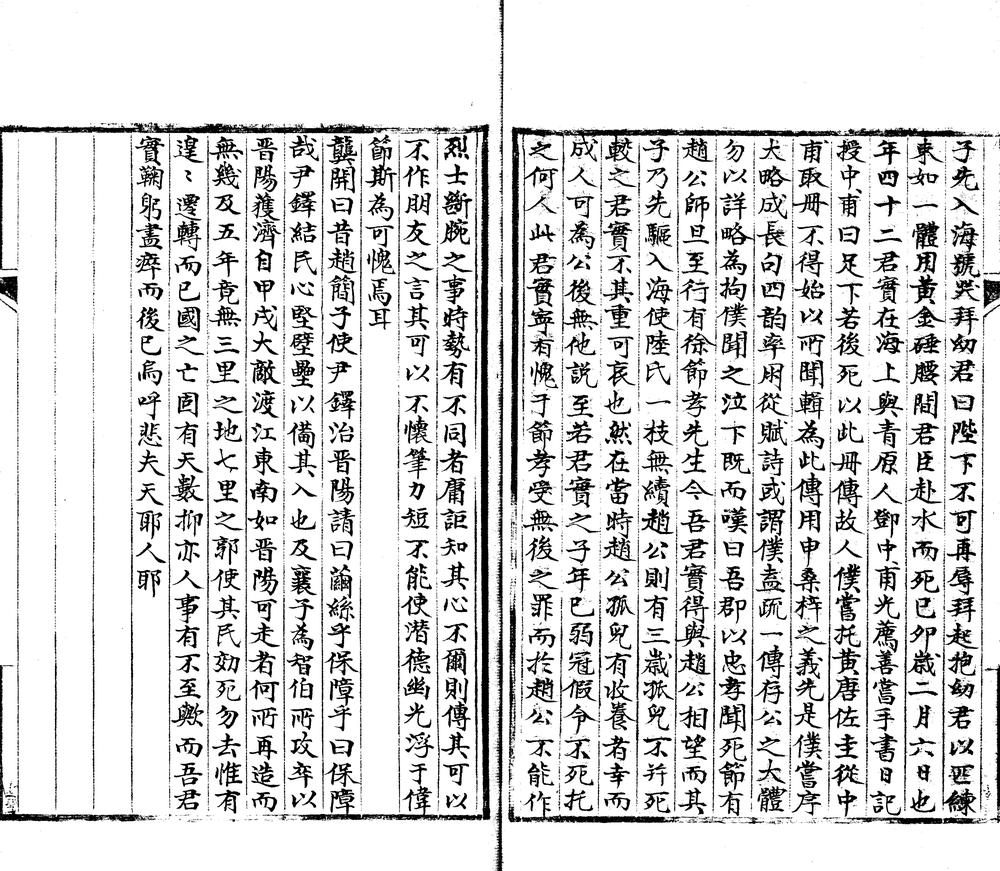 子先入海號哭拜幼君曰陛下不可再辱拜起抱幼君以匹練
束如一體用黃金硾腰間君臣赴水而死已卯歲二月六日也
年四十二君實在海上與青原人鄧中甫光薦善嘗手書日記
授中甫曰足下若後死以此冊傳故人僕嘗托黃唐佐圭從中
甫取冊不得始以所聞輯為此傳用申桑梓之義先是僕嘗序
大略成長句四韵率用從賦詩或謂僕盍疏一傳存公之大體
勿以詳略為拘僕聞之泣下既而嘆曰吾郡以忠孝聞死節有
趙公師旦至行有徐節孝先生今吾君實得與趙公相望而其
子乃先驅入海使陸氏一枝無續趙公則有三歲孤兒不并死
較之君實不其重可哀也然在當時趙公孤兒有收養者幸而
成人可為公後無他説至若君實之子年已弱冠假令不死托
之何人此君實寧有愧于節孝受無後之罪而於趙公不能作
烈士斷腕之事時勢有不同者庸詎知其心不爾則傳其可以
不作朋友之言其可以不懷筆力短不能使潛德幽光浮于偉
節斯為可愧焉耳
龔開曰昔趙簡子使尹鐸治晋陽請曰繭絲乎保障乎曰保障
哉尹鐸結民心堅壁壘以備其入也及襄子為智伯所攻卒以
晋陽獲濟自甲戌大敵渡江東南如晋陽可走者何所再造而
無幾及五年竟無三里之地七里之郭使其民効死勿去惟有
遑〻遷轉而已國之亡固有天數抑亦人事有不至歟而吾君
實鞠躬盡瘁而後已烏呼悲夫天耶人耶